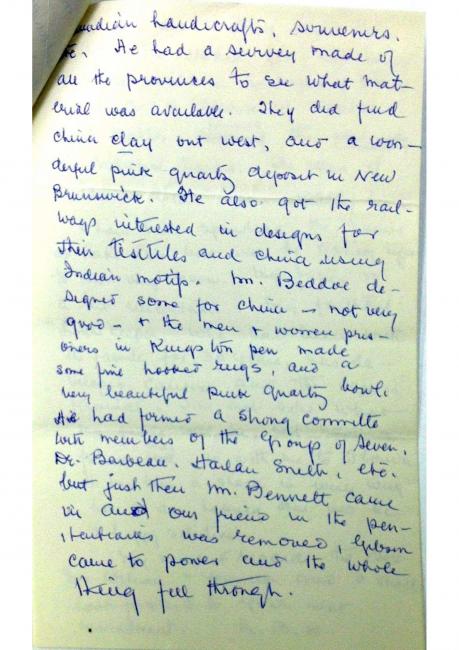 nadian handicrafts, souvenirs,
etc. He had a survey made of
all the provinces to see what mat-
erial was available. They did find
china clay out west, and a won-
derful pink quartz deposit in New
Brunswick. He also got the rail-
ways interested in designs for
their textiles and china using
Indian motifs. Mr. Beddoe de-
signed some for china - not very
good - + the men + women pris-
oners in Kingston pen made
some fine hooked rugs, and a
very beautiful pink quartz bowl.
He had formed a strong committe
with members of the Group of Seven,
Dr. Barbeau, Harlan Smith, etc.
but just then Mr. Bennett came
in and our friend in the pen-
itentiaries was removed, Gibson
came to power and the whole
thing fell through.